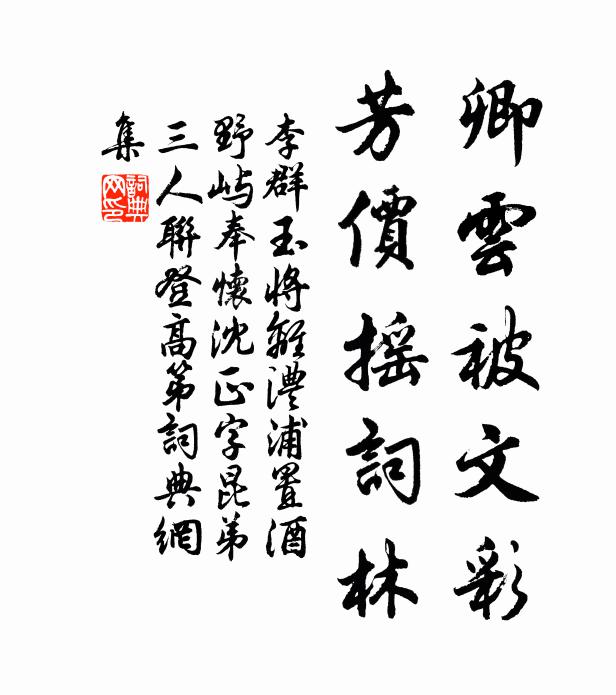 卿雲被文彩
芳價搖詞林
李群玉將離澧浦置酒
野嶼奉懷沈正字昆弟
三人聯登高第詞典網
集
詞典
网印